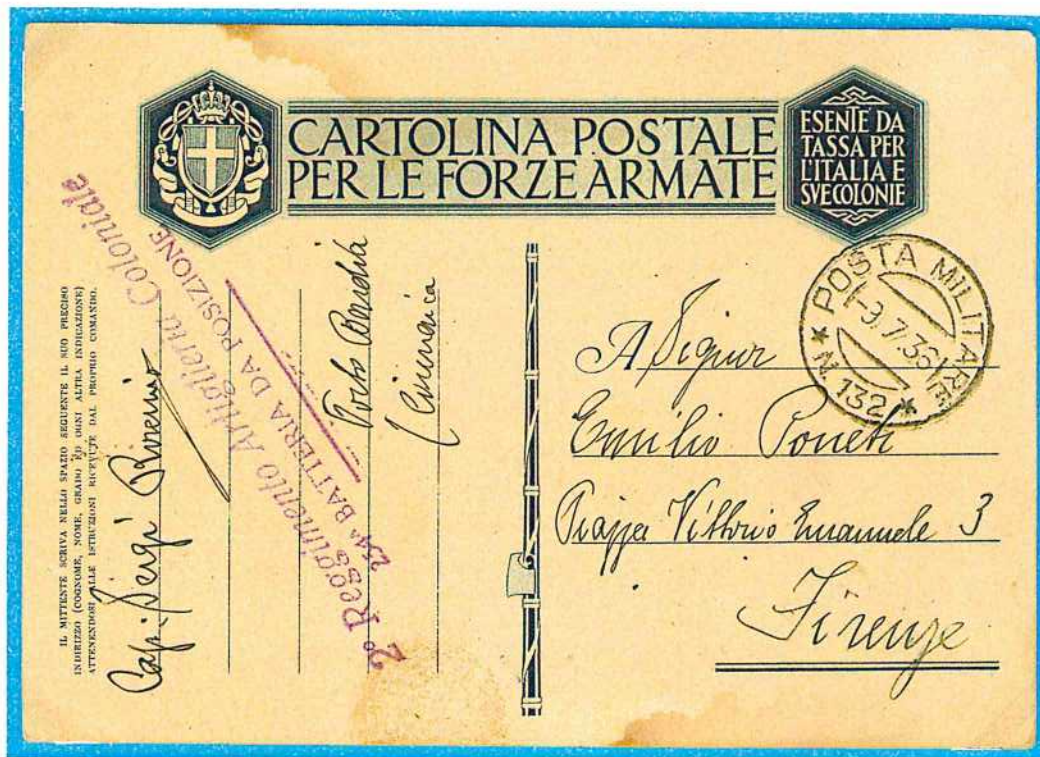 CARTOLINA POSTALE
PER LE FORZE ARMATE
ESENTE DA
TASSA PER
L'ITALIA E
SVE COLONIE
POSTA MILITARE
3.7.36
N. 132
IL MITTENTE SCRIVA NELLO SPAZIO SEGUENTE IL SUO PRECISO
INDIRIZZO (COGNOME, NOME, GRADO ED OGNI ALTRA INDICAZIONE)
ATTENENDOSI ALLE ISTRUZIONI RICEVUTE DAL PROPRIO COMANDO.
2º Reggimento Artiglieria Coloniale
BATTERIA DA POSIZIONE
Emilio
Piazza Vittorio Emanuele 3
Firenze